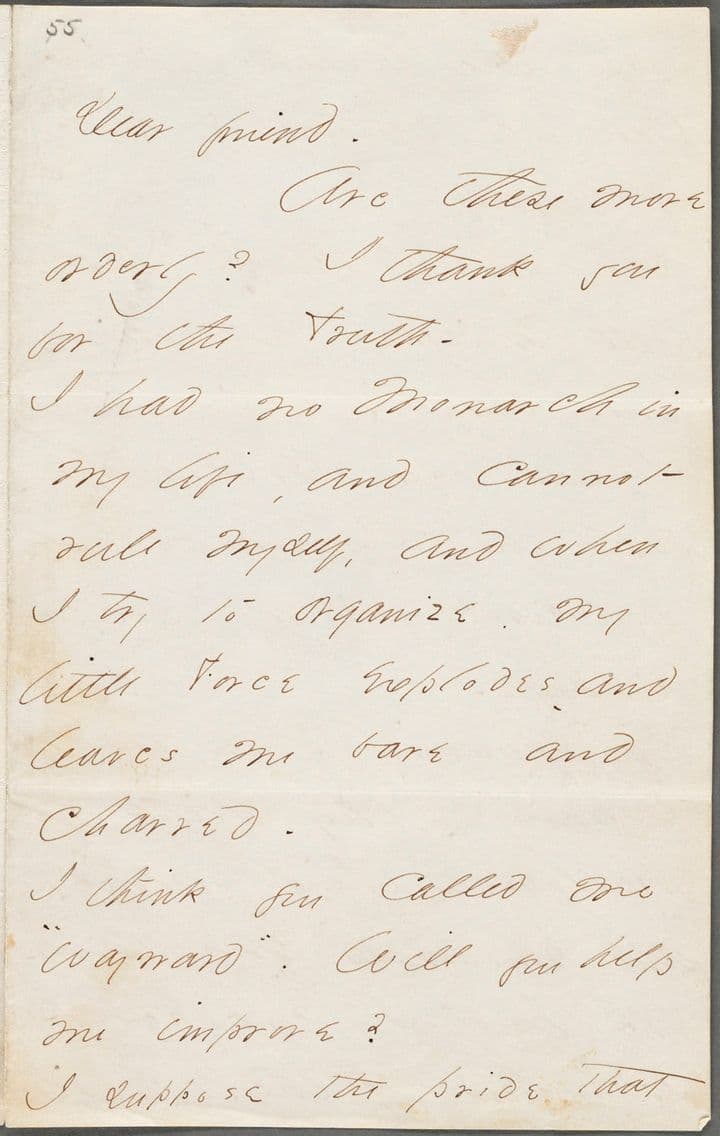 55
Dear friend.
Are these more
orderly? I thank you
for the Truth -
I had no Monarch in
my life, and cannot
rule myself, and when
I try to organize - my
little Force explodes - and
leaves me bare and
charred -
I think you called me
"Wayward". Will you help
me improve?
I suppose the pride that